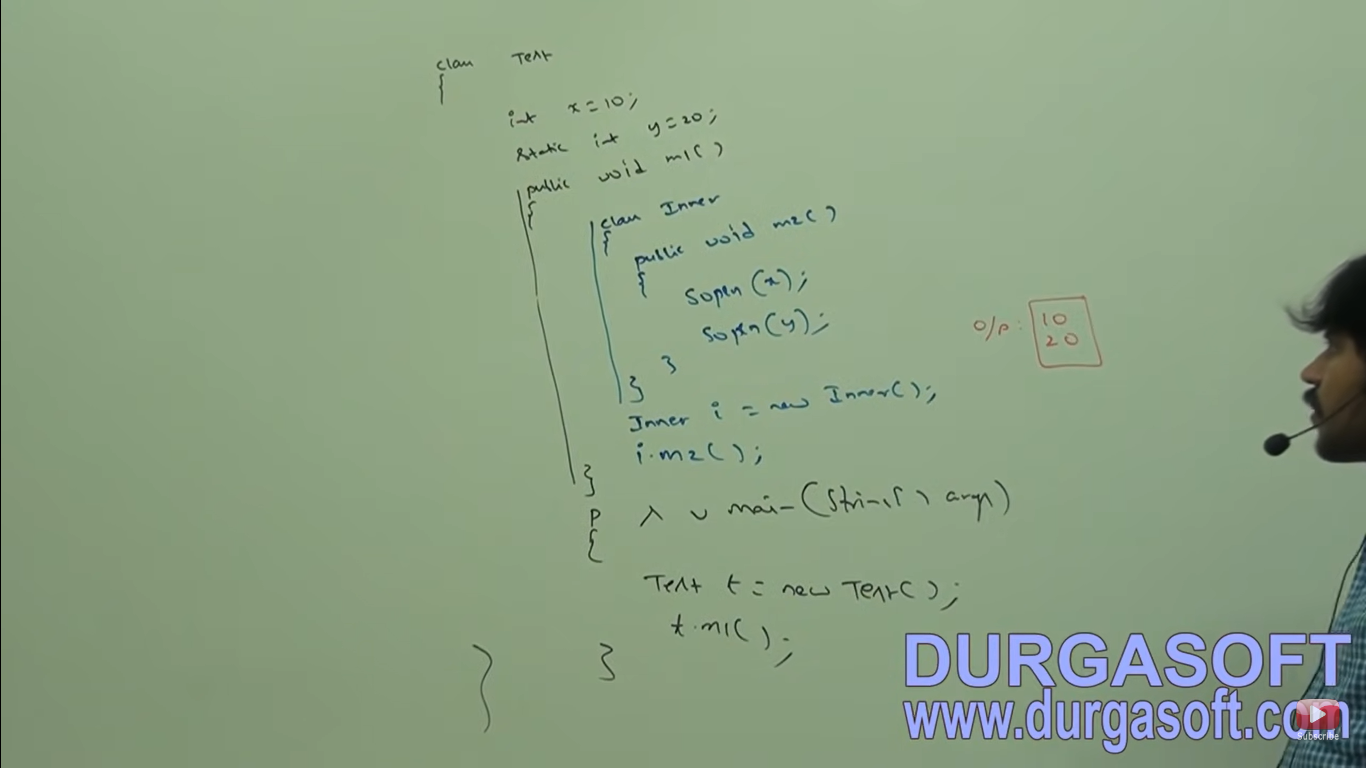 class Test
{
int x = 10;
static int y = 20;
public void m1( )
{
class Inner
{
public void m2( )
{
Sopln (x);
Sopln (y);
}
}
Inner i = new Inner( );
i.m2( );
}
p s v main (String[ ] args)
{
Test t = new Test( );
t.m1( );
}
}
o/p : 10
20
DURGASOFT
www.durgasoft.com
Subscribe